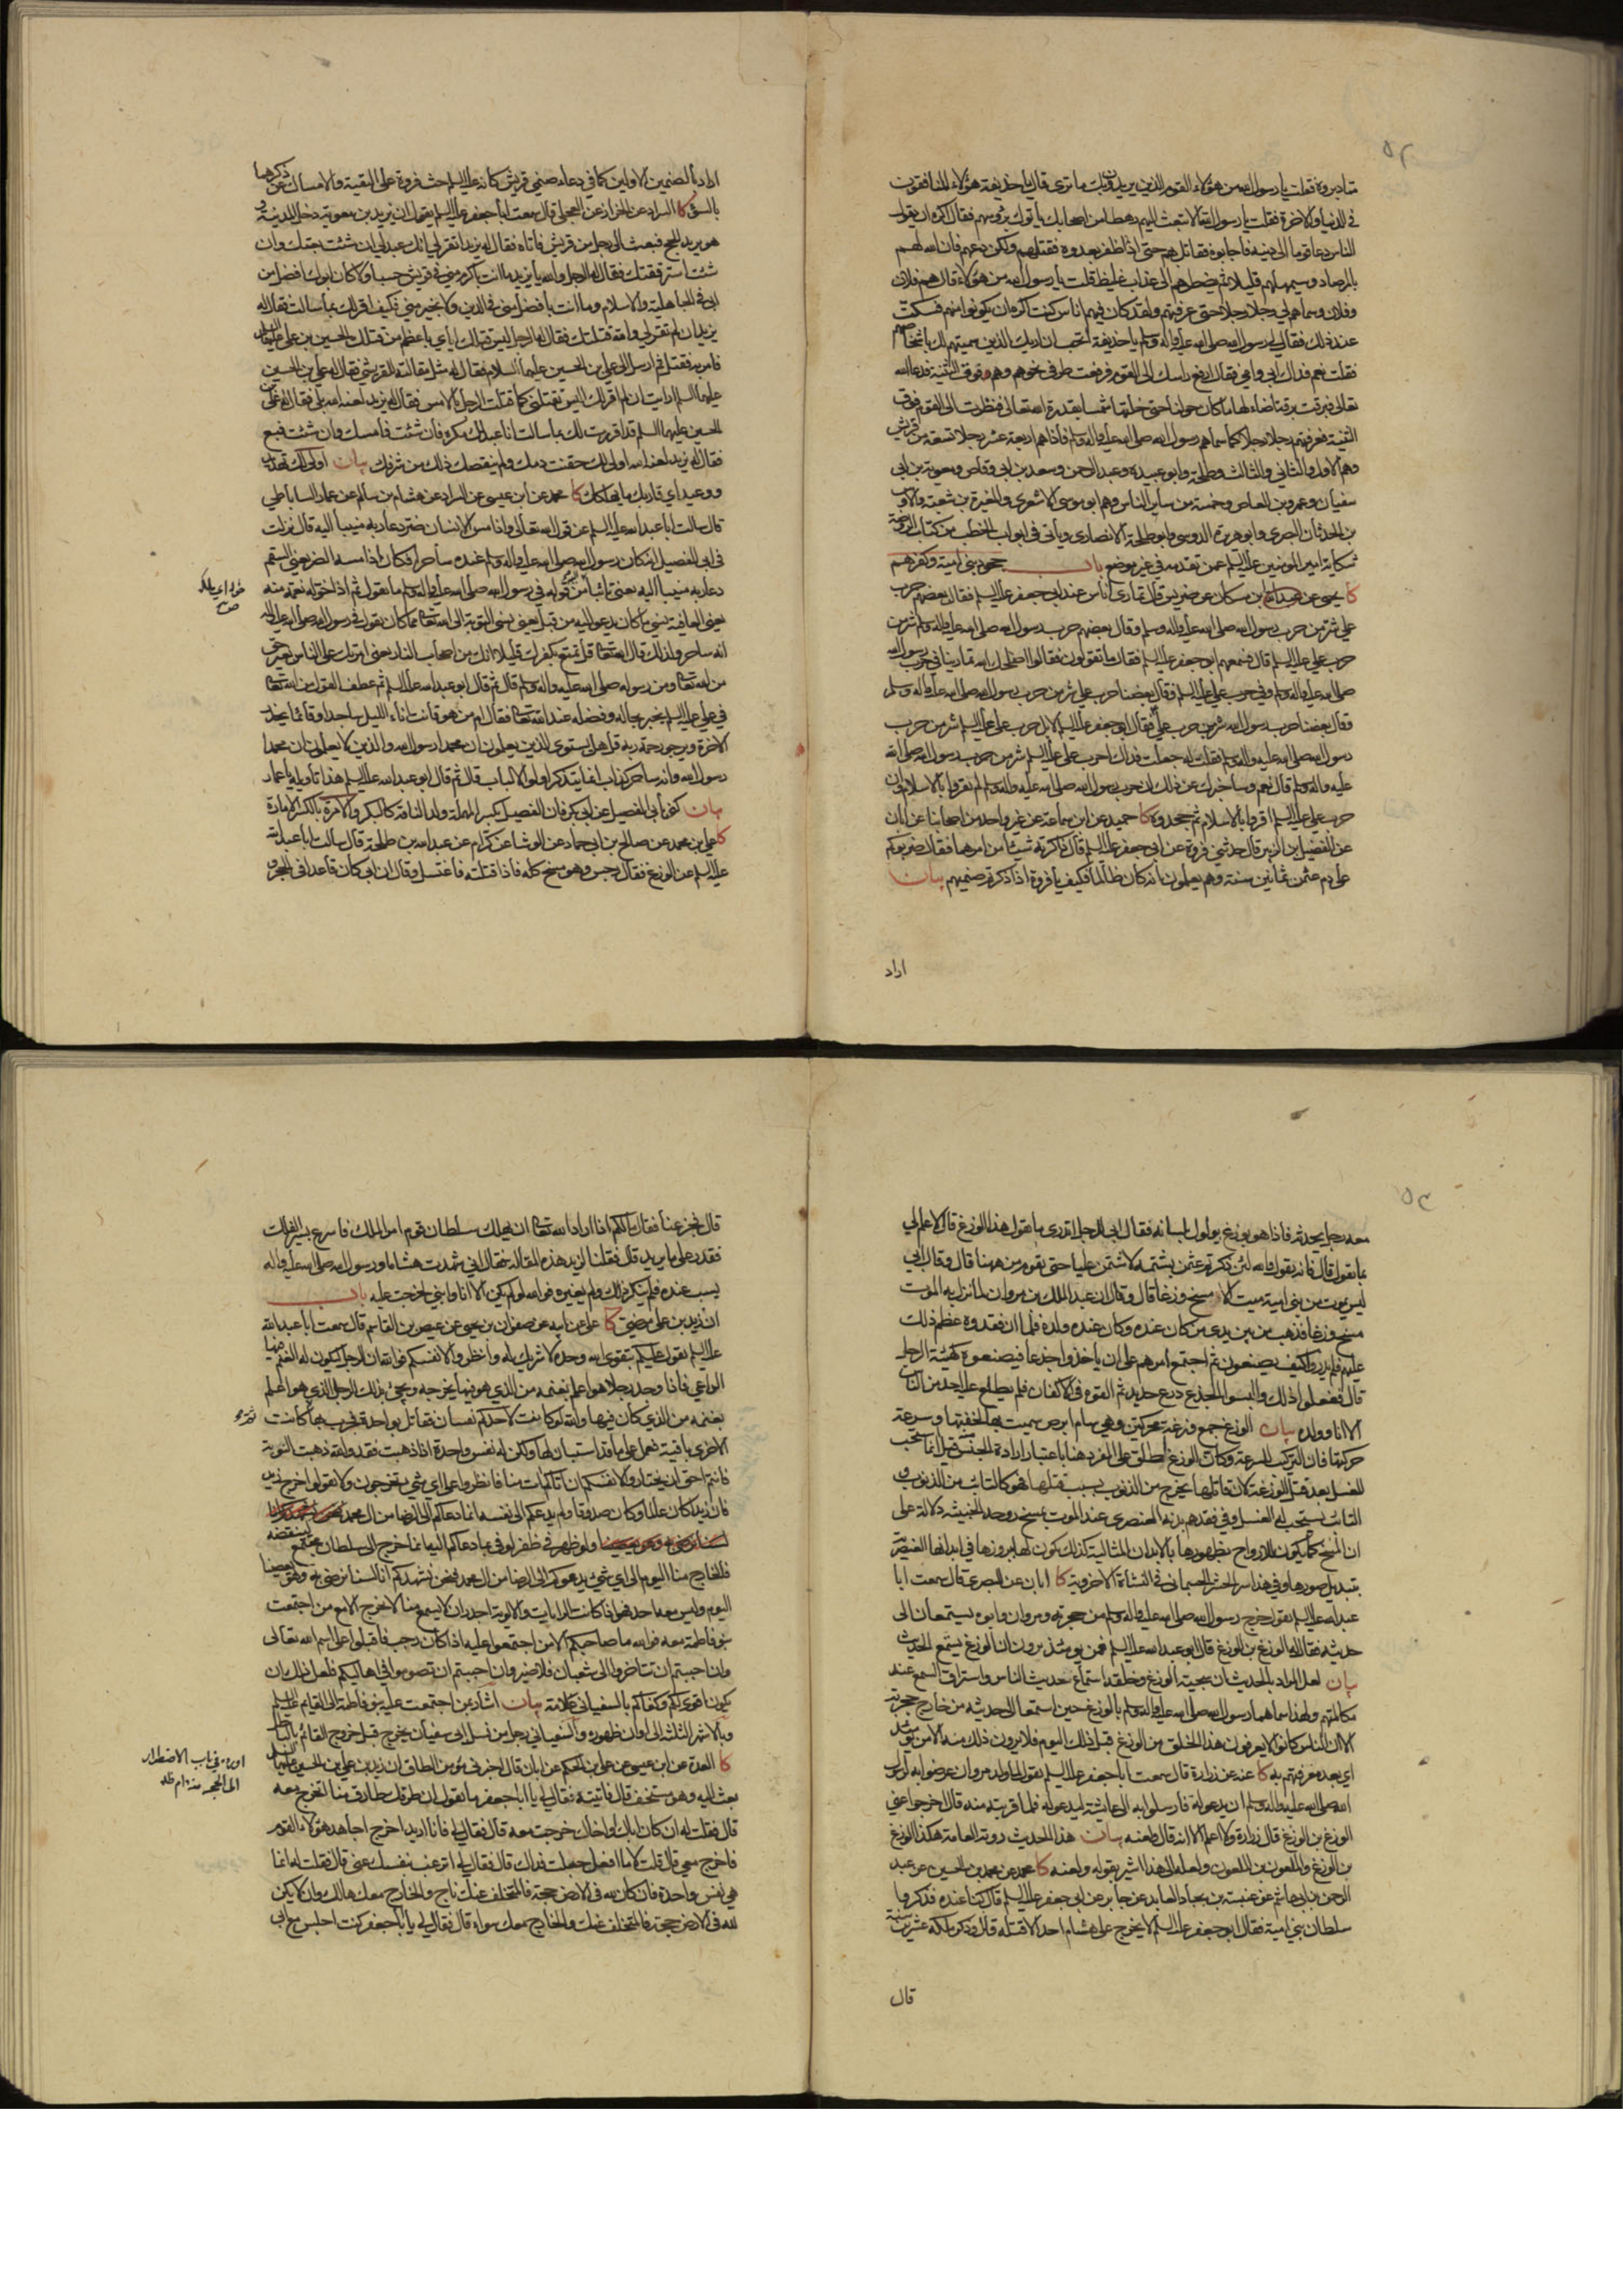 فقلت يا رسول الله من هؤلاء القوم الذين يريدون بك ما ترى قال يا حذيفة هؤلاء المنافقون
في الدنيا والآخرة فقلت يا رسول الله الا تبعث اليهم رهطا من اصحابك يأتوك برؤسهم فقال اكره ان يقول
الناس دعا قوما الى دينه فاجابوه فقاتل بهم حتى اذا ظفر بعدوه فقتلهم ولكن دعهم فان الله لهم
بالمرصاد وسيمهلهم قليلا ثم يضطرهم الى عذاب غليظ قلت يا رسول الله من هؤلاء قال هم فلان
وفلان وسماهم لي رجلا رجلا حتى عرفتهم ولقد كان فيهم اناس كنت اكره ان يكونوا منهم فسكت
عند ذلك فقال لي رسول الله صلى الله عليه وآله وسلم يا حذيفة اتحب ان اريك الذين سميتهم لك باشخاصهم
فقلت نعم فداك ابي وامي فقال ارفع راسك الى القوم فرفعت طرفي نحوهم وهم وقوف فوق الثنية فدعا الله
تعالى فبرقت برقة اضاء لها ما كان حولنا حتى خلتها شمسا بقدرة الله تعالى فنظرت الى القوم فوق
الثنية فعرفتهم رجلا رجلا كما سماهم رسول الله صلى الله عليه وآله وسلم فاذا هم اربعة عشر رجلا تسعة من قريش
وهم الاول والثاني والثالث وطلحة وابو عبيدة وعبد الرحمن وسعد بن ابي وقاص ومعوية بن ابي
سفيان وعمرو بن العاص وخمسة من ساير الناس وهم ابو موسى الاشعري والمغيرة بن شعبة والاوس
بن الحدثان البصري وابو هريرة الدوسي وابو طلحة الانصاري ويأتي في ابواب الخطب من كتاب الروضة
شكاية امير المؤمنين عليه السلم عمن تقدمه في غير موضع باب جحود بني امية وكفرهم
كا يحيى عن عبد الله بن مسكان عن ضريس قال تمارى اناس عند ابي جعفر عليه السلم فقال بعضهم حرب
علي شر من حرب رسول الله صلى الله عليه وآله وسلم وقال بعضهم حرب رسول الله صلى الله عليه وآله وسلم شر من
حرب علي عليه السلم قال فسمعهم ابو جعفر عليه السلم فقال ما تقولون فقالوا اصلحك الله تمارينا في حرب رسول الله
صلى الله عليه وآله وسلم وفي حرب علي عليه السلم فقال بعضنا حرب علي شر من حرب رسول الله صلى الله عليه وآله وسلم
وقال بعضنا حرب رسول الله شر من حرب علي فقال ابو جعفر عليه السلم لا بل حرب علي عليه السلم شر من حرب
رسول الله صلى الله عليه وآله وسلم فقلت له جعلت فداك احرب علي عليه السلم شر من حرب رسول الله صلى الله
عليه وآله وسلم قال نعم وساخبرك عن ذلك ان حرب رسول الله صلى الله عليه وآله وسلم لم تقروا بالاسلام وان
حرب علي عليه السلم اقروا بالاسلام ثم جحدوه كا حميد عن ابن سماعة عن غير واحد من اصحابنا عن ابان
عن الفضيل ابن الزبير قال حدثني فروة عن ابي جعفر عليه السلم قال ذاكرته شيئا من امرهما فقال ضربوكم
على دم عثمن ثمانين سنة وهم يعلمون انه كان ظالما فكيف يا فروة اذا ذكرتم صنميهم بيان
اراد
اراد بالصنمين الاولين كما في دعاء صنمي قريش كانه عليه السلم حث فروة على التقية والامساك عن ذكرهما
بالسوء كا السراد عن الخراز عن العجلي قال سمعت ابا جعفر عليه السلم يقول ان يزيد بن معوية دخل المدينة و
هو يريد الحج فبعث الى رجل من قريش فاتاه فقال له يزيد اتقر لي انك عبد لي ان شئت بعتك وان
شئت استرققتك فقال له الرجل والله يا يزيد ما انت باكرم مني في قريش حسبا ولا كان ابوك افضل من
ابي في الجاهلية والاسلام وما انت بافضل مني في الدين ولا بخير مني فكيف اقر لك بما سالت فقال له
يزيد ان لم تقر لي والله قتلتك فقال له الرجل ليس قتلك اياي باعظم من قتلك الحسين بن علي عليهما السلم
فامر به فقتل ثم ارسل الى علي بن الحسين عليهما السلام فقال له مثل مقالته للقرشي فقال له علي بن الحسين
عليهما السلم ارايت ان لم اقر لك اليس تقتلني كما قتلت الرجل بالامس فقال له يزيد لعنه الله بلى فقال له علي بن
الحسين عليهما السلم قد اقررت لك بما سالت انا عبد لك مكره فان شئت فامسك وان شئت فبع
فقال له يزيد لعنه الله اولى لك حقنت دمك ولم ينقصك ذلك من شرفك بيان اولى لك تهدد
ووعيد اي قاربك ما يهلكك كا محمد عن ابن عيسى عن السراد عن هشام بن سالم عن عمار الساباطي
قال سالت ابا عبد الله عليه السلم عن قول الله تعالى واذا مس الانسان ضر دعا ربه منيبا اليه قال نزلت
في ابي الفصيل انه كان رسول الله صلى الله عليه وآله وسلم عنده ساحرا فكان اذا مسه الضر يعني السقم
دعا ربه منيبا اليه يعني تائبا من قوله في رسول الله صلى الله عليه وآله وسلم ما يقول ثم اذا خوله نعمة منه
يعني العافية نسي ما كان يدعو اليه من قبل يعني نسي التوبة الى الله تعالى مما كان يقول في رسول الله صلى الله عليه وآله
انه ساحر ولذلك قال الله تعالى قل تمتع بكفرك قليلا انك من اصحاب النار يعني امرتك على الناس بغير حق
من الله تعالى ومن رسوله صلى الله عليه وآله وسلم قال ثم قال ابو عبد الله عليه السلم ثم عطف القول من الله تعالى
في علي عليه السلم يخبر بحاله وفضله عند الله تعالى فقال ام من هو قانت اناء الليل ساجدا وقائما يحذر
الاخرة ويرجو رحمة ربه قل هل يستوي الذين يعلمون ان محمدا رسول الله والذين لا يعلمون ان محمدا
رسول الله وانه ساحر كذاب انما يتذكر اولوا الالباب قال ثم قال ابو عبد الله عليه السلم هذا تأويله يا عمار
بيان كنى بابي الفصيل عن ابي بكر فان الفصيل بكسر المهملة ولد الناقة كالبكر والامرة بالكسر الامارة
كا علي بن محمد عن صالح بن ابي حماد عن الوشا عن كرام عن عبد الله بن طلحة قال سالت ابا عبد الله
عليه السلم عن الوزغ فقال رجس وهو مسخ كله فاذا قتلته فاغتسل وقال ان ابي كان قاعدا في الحجر
معه رجل يحدثه فاذا هو بوزغ يولول بلسانه فقال ابي للرجل اتدري ما يقول هذا الوزغ قال لا علم لي
بما يقول قال فانه يقول والله لئن ذكرتم عثمن بشتيمة لاشتمن عليا حتى يقوم من ههنا قال وقال ابي
ليس يموت من بني امية ميت الا مسخ وزغا قال وقال ان عبد الملك بن مروان لما نزل به الموت
مسخ وزغا فذهب من بين يدي من كان عنده وكان عنده ولده فلما ان فقدوه عظم ذلك
عليهم فلم يدروا كيف يصنعون ثم اجتمع امرهم على ان ياخذوا جذعا فيصنعوه كهيئة الرجل
قال ففعلوا ذلك والبسوا الجذع درع حديد ثم لفوه في الاكفان فلم يطلع عليه احد من الناس
الا انا وولده بيان الوزغ جمع وزغة محركتين وهي سام ابرص سميت بها لخفتها وسرعة
حركتها فان التركيب للسرعة وكان الوزغ اطلق على المفرد هنا باعتبار ارادة الجنس قيل انما يستحب
الغسل بعد قتل الوزغة لان قاتلها يخرج من الذنوب بسبب قتلها فهو كالتائب من الذنوب و
التائب يستحب له الغسل وفي فقدهم بدنه العنصري عند الموت بمسخ روحه الخبيثة دلالة على
ان المسخ كما يكون للارواح بظهورها بالابدان المثالية كذلك يكون لها ببروزها في ابدانها العنصرية
بتبديل صورها وفي هذا سر الحشر الجسماني في النشأة الاخروية كا ابان عن البصري قال سمعت ابا
عبد الله عليه السلم يقول خرج رسول الله صلى الله عليه وآله وسلم من حجرته ومروان وابوه يستمعان الى
حديثه فقال له الوزغ بن الوزغ قال ابو عبد الله عليه السلم فمن يومئذ يرون ان الوزغ يستمع الحديث
بيان لعل المراد بالحديث ان سجية الوزغ وخلقه استماع حديث الناس واستراق السمع عند
مكالمتهم ولهذا سماهما رسول الله صلى الله عليه وآله وسلم بالوزغ حين استمعا الى حديثه من خارج حجرته
الا ان الناس كانوا لا يعرفون هذا الخلق من الوزغ قبل ذلك اليوم فلا يرون ذلك منه الا من يومئذ
اي بعد معرفتهم به كا عنه عن زرارة قال سمعت ابا جعفر عليه السلم يقول لما ولد مروان عرضوا به لرسول
الله صلى الله عليه وآله وسلم ان يدعو له فارسلوا به الى عائشة ليدعو له فلما قربته منه قال اخرجوا عني
الوزغ بن الوزغ قال زرارة ولا اعلم الا انه قال ولعنه بيان هذا الحديث روته العامة هكذا الوزغ
بن الوزغ والملعون بن الملعون ولعله الى هذا اشير بقوله ولعنه كا محمد عن محمد بن الحسين عن عبد
الرحمن بن ابي هاشم عن عنبسة بن بجاد العابد عن جابر عن ابي جعفر عليه السلم قال كنا عنده فذكروا
سلطان بني امية فقال ابو جعفر عليه السلم لا يخرج على هشام احد الا قتله قال وذكر ملكه عشرين سنة
قال
قال فجزعنا فقال ما لكم اذا اراد الله تعالى ان يهلك سلطان قوم امر الملك فاسرع بسير الفلك
فقدر على ما يريد قال فقلنا لزيد هذه المقالة فقال اني شهدت هشاما ورسول الله صلى الله عليه وآله
يسب عنده فلم ينكر ذلك ولم يغيره فوالله لو لم يكن الا انا وابني لخرجت عليه باب
ان زيد بن علي مرضي كا علي عن ابيه عن صفوان بن يحيى عن عيص بن القاسم قال سمعت ابا عبد الله
عليه السلم يقول عليكم بتقوى الله وحده لا شريك له وانظروا لانفسكم فوالله ان الرجل ليكون له الغنم فيها
الراعي فاذا وجد رجلا هو اعلم بغنمه من الذي هو فيها يخرجه ويجيء بذلك الرجل الذي هو اعلم
بغنمه من الذي كان فيها والله لو كانت لاحدكم نفسان يقاتل بواحدة يجرب بها ثم كانت
الاخرى باقية تعمل على ما قد استبان لها ولكن له نفس واحدة اذا ذهبت فقد والله ذهبت التوبة
فانتم احق ان تختاروا لانفسكم ان اتاكم ات منا فانظروا على اي شيء تخرجون ولا تقولوا خرج زيد
فان زيدا كان عالما وكان صدوقا ولم يدعكم الى نفسه انما دعاكم الى الرضا من ال محمد
ولو ظهر في ظفر لوفى بما دعاكم اليه انما خرج الى سلطان مجتمع لينقضه
فالخارج منا اليوم الى اي شيء يدعوكم الى الرضا من ال محمد فنحن نشهدكم انا لسنا نرضى به وهو يعصينا
اليوم وليس معه احد فهو اذا كانت الرايات والالوية اجدر ان لا يسمع منا الا مع من اجتمعت
بنو فاطمة معه فوالله ما صاحبكم الا من اجتمعوا عليه اذا كان رجب فاقبلوا على اسم الله تعالى
وان احببتم ان تتاخروا الى شعبان فلا ضير وان احببتم ان تصوموا في اهاليكم فلعل ذلك ان
يكون اقوى لكم وكفاكم بالسفياني علامة بيان اشار بمن اجتمعت عليه بنو فاطمة الى القايم عليه السلم
وبالاشهر الثلثة الى اوان ظهوره والسفياني رجل من نسل ابي سفيان يخرج قبل خروج القائم
كا العدة عن ابن عيسى عن علي بن الحكم عن ابان قال اخبرني مؤمن الطاق ان زيد بن علي بن الحسين عليهما السلم
بعث اليه وهو مستخف قال فاتيته فقال لي يا ابا جعفر ما تقول ان طرقك طارق منا اتخرج معه
قال فقلت له ان كان اباك او اخاك خرجت معه قال فقال لي فانا اريد اخرج اجاهد هؤلاء القوم
فاخرج معي قال قلت لا ما افعل جعلت فداك قال فقال لي اترغب بنفسك عني قال فقلت له انما
هي نفس واحدة فان كان لله في الارض حجة فالمتخلف عنك ناج والخارج معك هالك وان لا يكن
لله في الارض حجة فالمتخلف عنك والخارج معك سواء قال فقال لي يا ابا جعفر كنت اجلس مع ابي